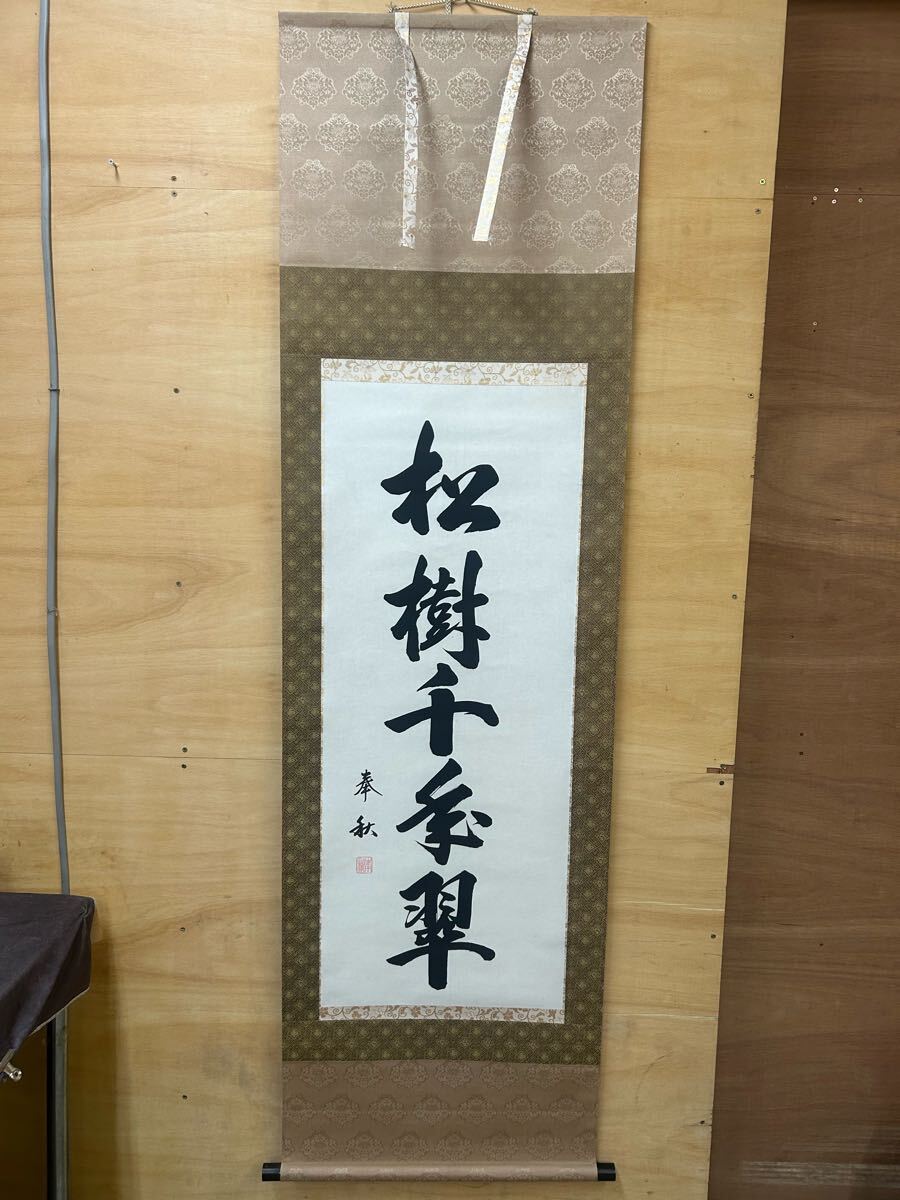 松樹千年翠
奉秋